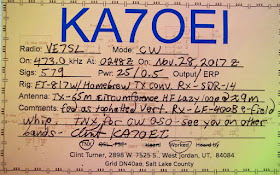 KA7OEI
Radio: VE7SL Mode: CW
On: 473.0 kHz At: 0248Z On: Nov. 28, 2017 Z
Sigs: 579 Pwr: 25/0.5 Output/ERP
Rig: FT-817W/Homebrew TX conv. Rx-SDR-14
Antenna: TX-65m circumference HF Lazy loop @ ≈9m
Comments: fed as tophatted Vert. RX LF-400B E-field
whip. TNX for CW QSO - see you on other
bands - Clint KA7OEI
Heard Worked
Clint Turner, 2898 W. 7525 S., West Jordan, UT, 84084
Grid DN40ae, Salt Lake County